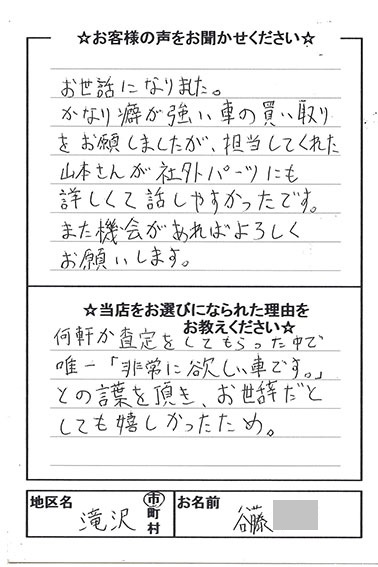 ☆お客様の声をお聞かせください☆
お世話になりました。
かなり癖が強い車の買い取り
をお願しましたが、担当してくれた
山本さんが社外パーツにも
詳しくて話しやすかったです。
また機会があればよろしく
お願いします。
☆当店をお選びになられた理由を
お教えください☆
何軒か査定をしてもらった中で
唯一「非常に欲しい車です。」
との言葉を頂き、お世辞だと
しても嬉しかったため。
地区名 滝沢 市町村 お名前 谷藤